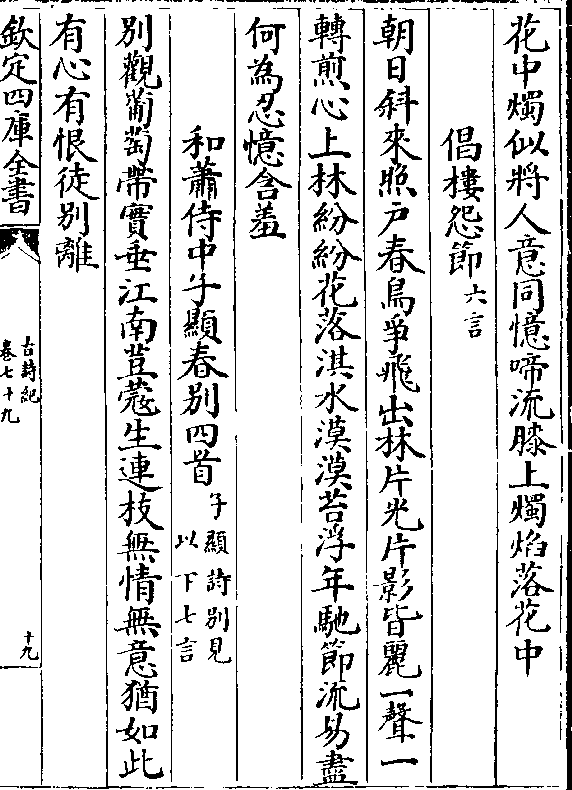 花中燭似將人意同憶啼流膝上燭焰落花中
倡樓怨節六言
朝日斜來照户春鳥爭飛出林片光片影皆麗一聲一
轉煎心上林紛紛花落淇水漠漠苔浮年馳節流易盡
何為忍憶含羞
和蕭侍中子顯春别四首子顯詩别見以下七言
别觀葡萄帶實垂江南荳蔻生連枝無情無意猶如此
有心有恨徒别離
欽定四庫全書
古詩紀
卷七十九
十九